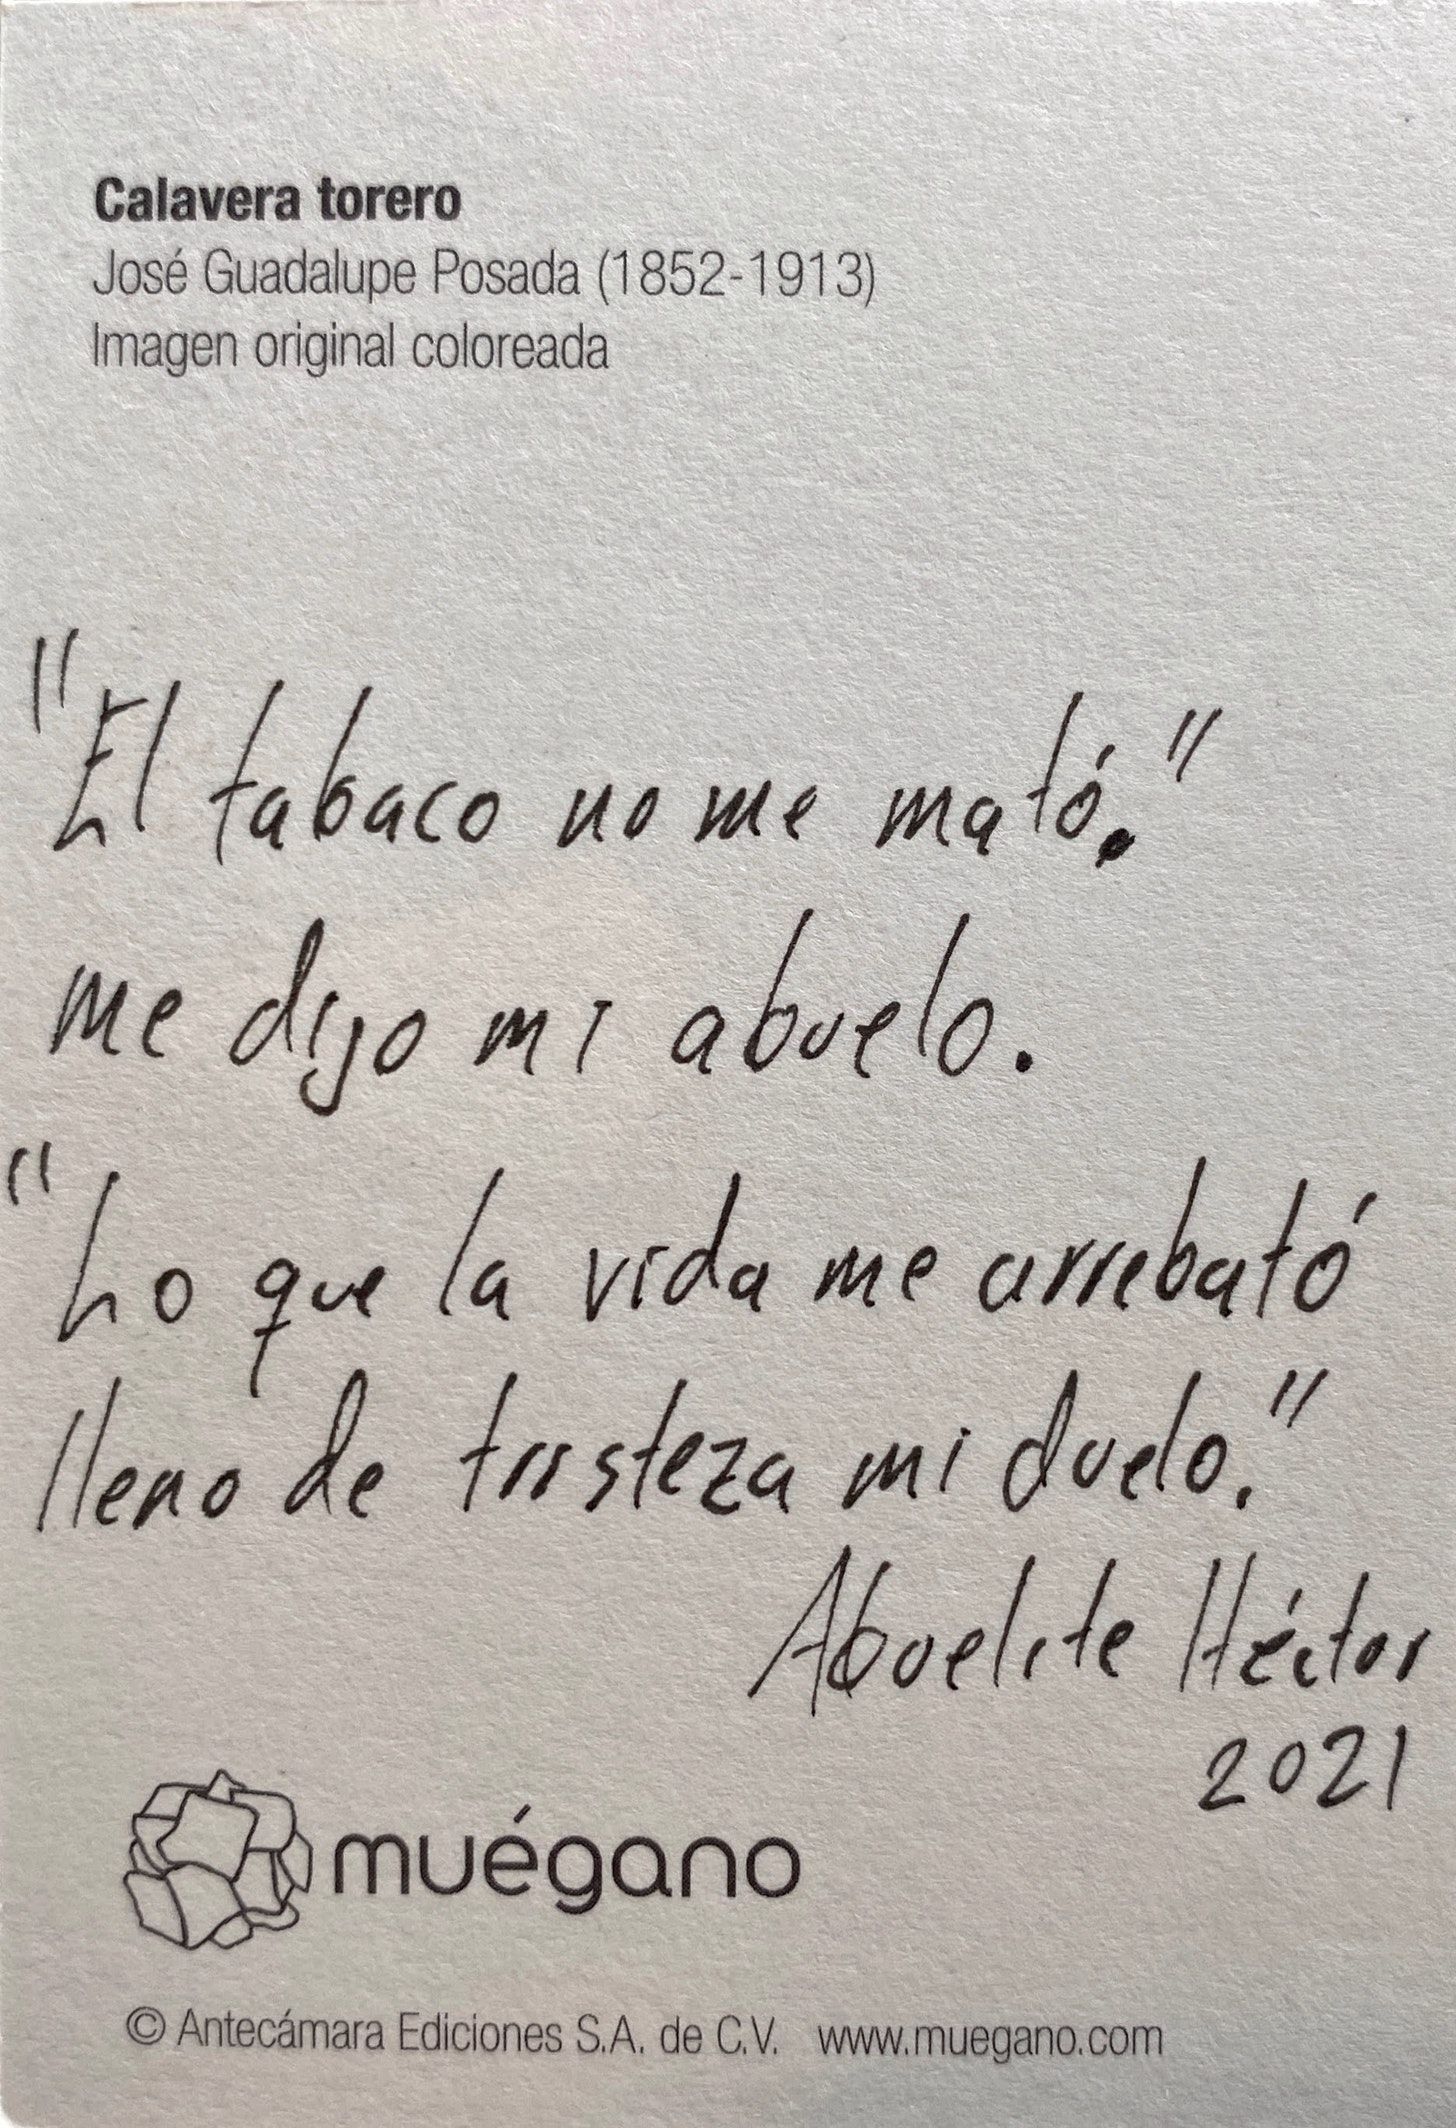 Calavera torero
José Guadalupe Posada (1852-1913)
Imagen original coloreada
"El tabaco no me mató."
me dijo mi abuelo.
"Lo que la vida me arrebató
lleno de tristeza mi duelo."
Abuelite Héctor
2021
muégano
© Antecámara Ediciones S.A. de C.V. www.muegano.com